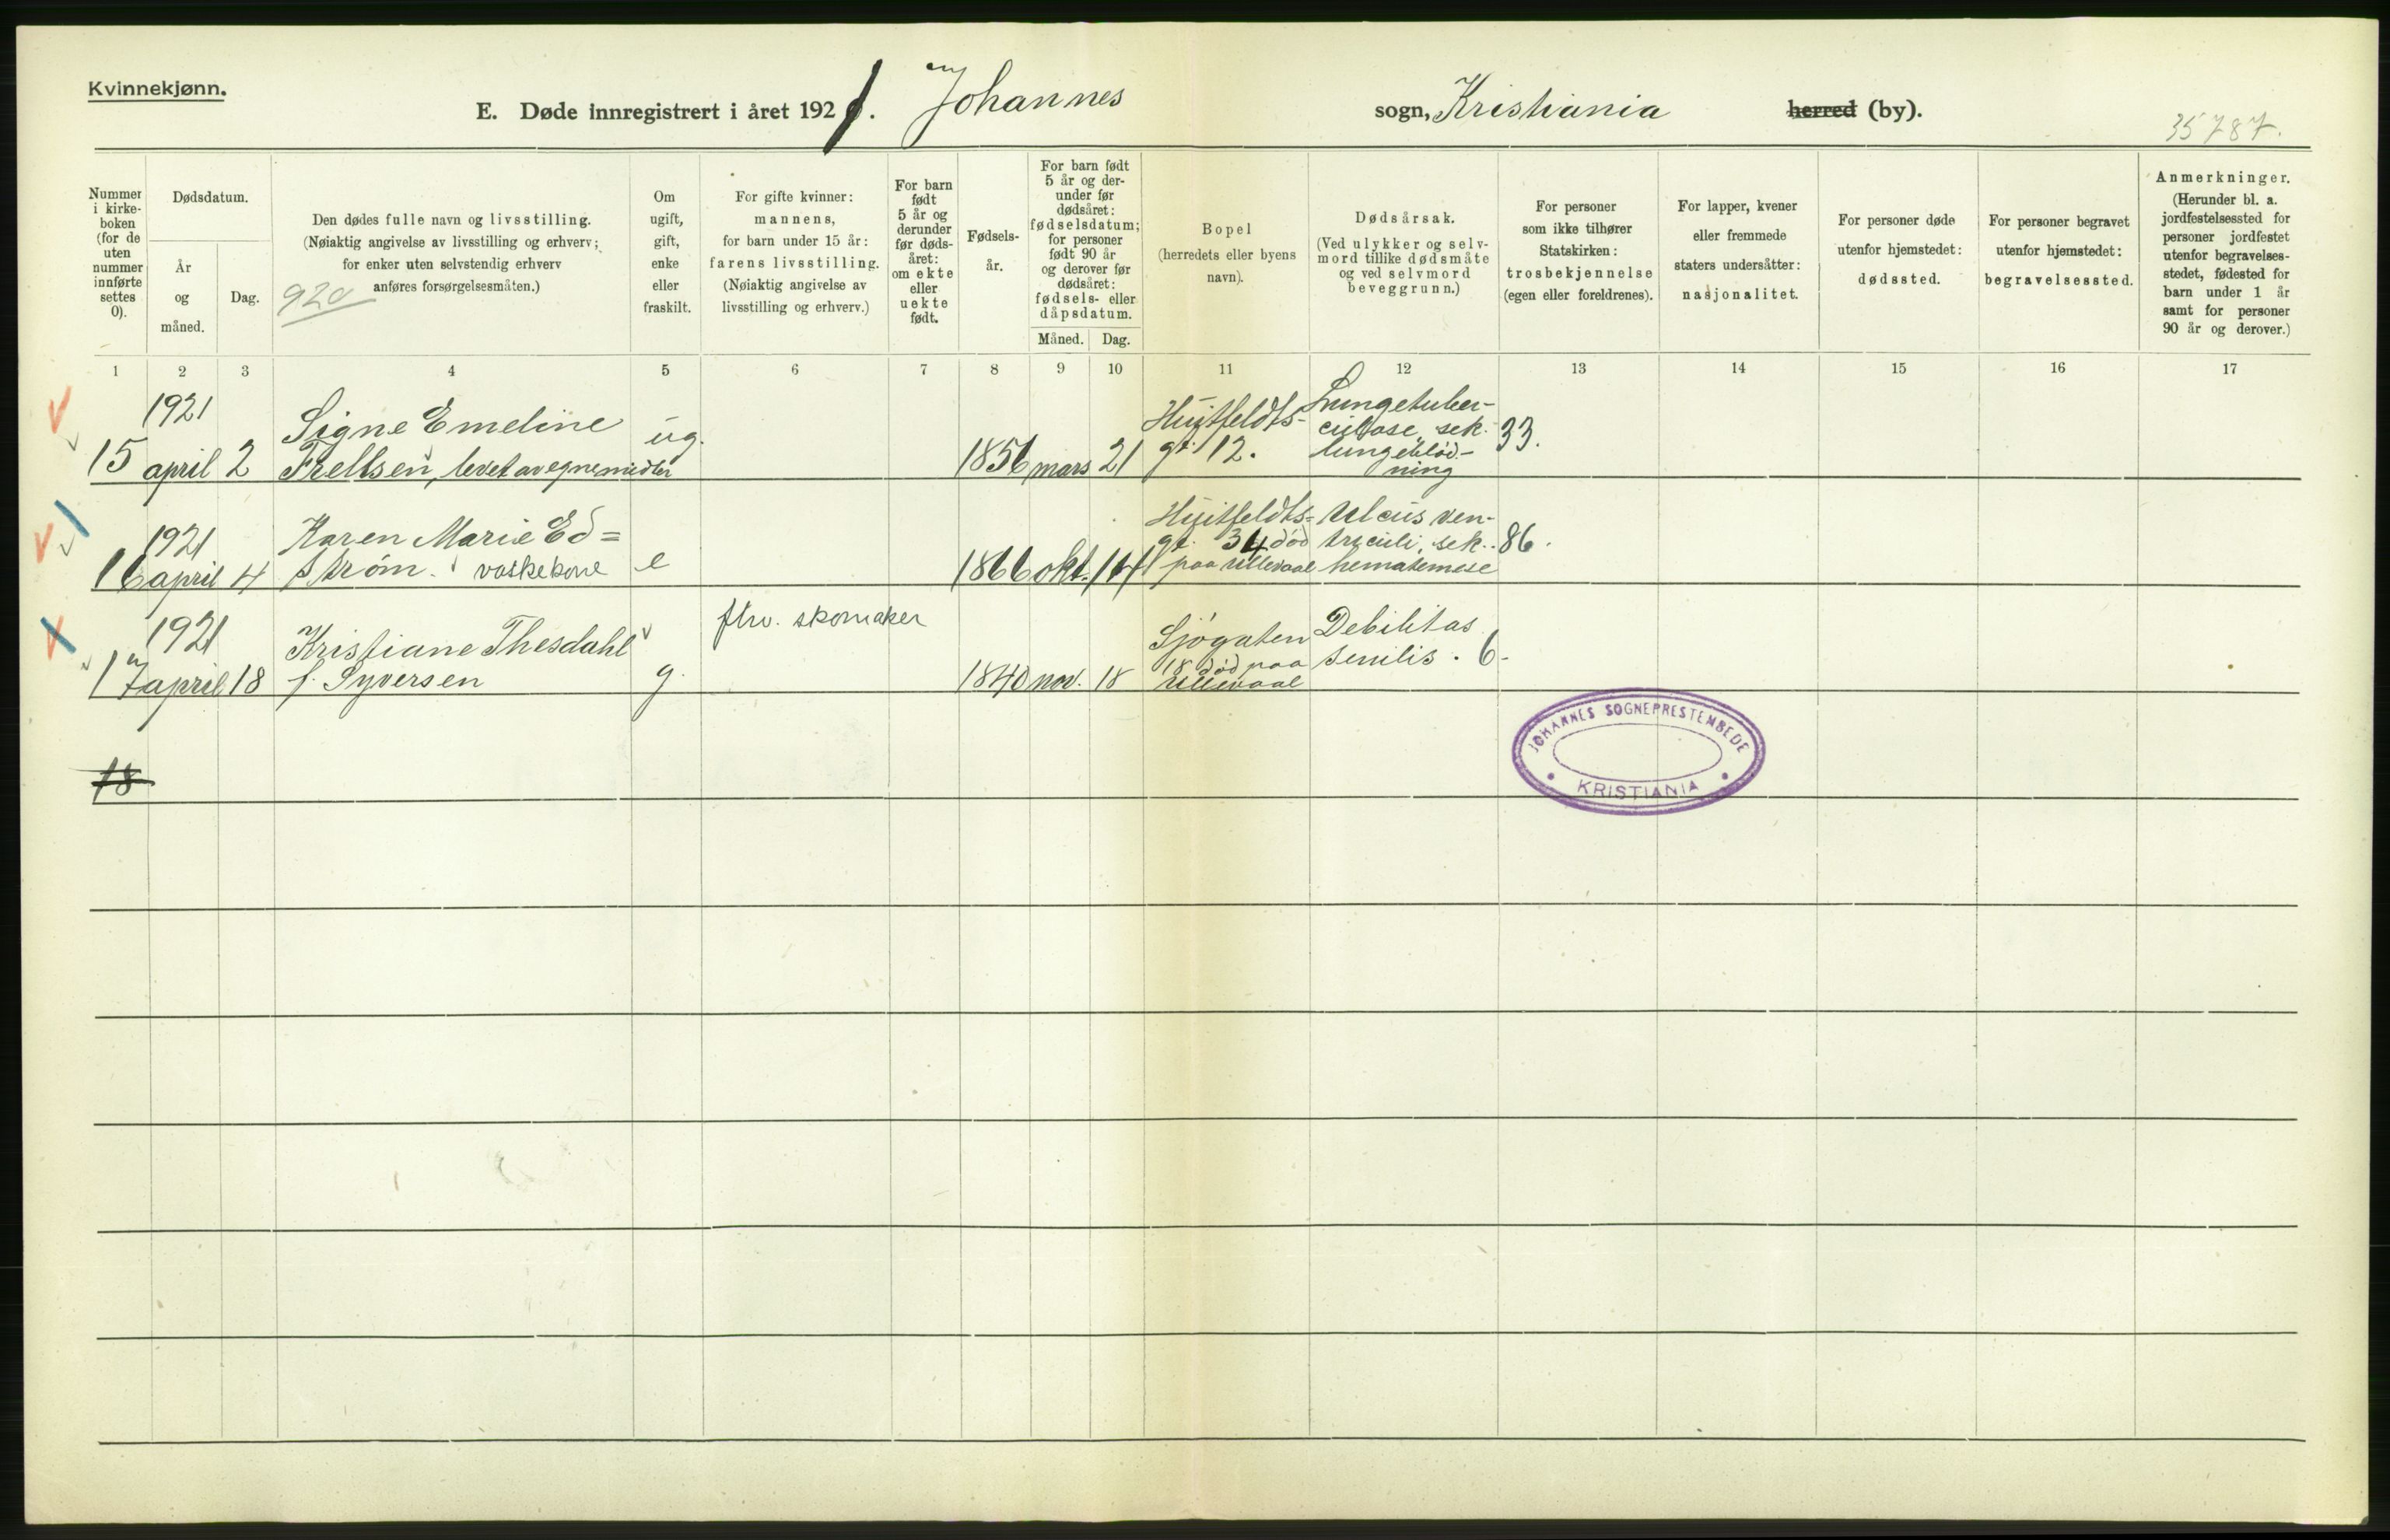 Kvinnekjønn.
E. Døde innregistrert i året 1921. Johannes sogn, Kristiania herred (by).
35787.
Nummer i kirke-boken (for de uten nummer innførte settes 0).
Dødsdatum.
År og måned.
Dag.
Den dødes fulle navn og livsstilling.
(Nøiaktig angivelse av livsstilling og erhverv;
for enker uten selvstendig erhverv
anføres forsørgelsesmåten.)
920
Om ugift, gift, enke eller fraskilt.
For gifte kvinner:
mannens,
for barn under 15 år:
farens livsstilling.
(Nøiaktig angivelse av
livsstilling og erhverv.)
For barn født 5 år og derunder før døds-året: om ekte eller uekte født.
Fødsels-år.
For barn født 5 år og der-under før dødsåret: fødselsdatum; for personer født 90 år og derover før dødsåret: fødsels- eller dåpsdatum.
Måned. Dag.
Bopel
(herredets eller byens
navn).
Dødsårsak.
(Ved ulykker og selv-
mord tillike dødsmåte
og ved selvmord
beveggrunn.)
For personer
som ikke tilhører
Statskirken:
trosbekjennelse
(egen eller foreldrenes).
For lapper, kvener
eller fremmede
staters undersåtter:
nasjonalitet.
For personer døde
utenfor hjemstedet:
dødssted.
For personer begravet
utenfor hjemstedet:
begravelsessted.
Anmerkninger.
(Herunder bl. a.
jordfestelsessted for
personer jordfestet
utenfor begravelses-
stedet, fødested for
barn under 1 år
samt for personer
90 år og derover.)
1 2 3 4 5 6 7 8 9 10 11 12 13 14 15 16 17
1921 Signe Emeline ug. Huitfeldts- Lungetuber-
culose, sek. 33.
15 april 2 Frellsen, levet av egne midler 1856 mars 21 gt. 12. lungeblød-
ning
1921 Karen Marie Ed= Huitfeldts= Ulcus ven-
gt. 34 død triculi, sek. 86.
16 april 4 strøm. vaskekone e 1866 okt. 14 paa Ullevaal hematemese
1921 Kristiane Thesdahl fhv. skomaker Sjøgaten Debilitas
18 død paa senilis. 6-
17 april 18 f. Syversen g. 1840 nov. 18 Ullevaal
18
JOHANNES SOGNEPRESTEMBEDE
KRISTIANIA